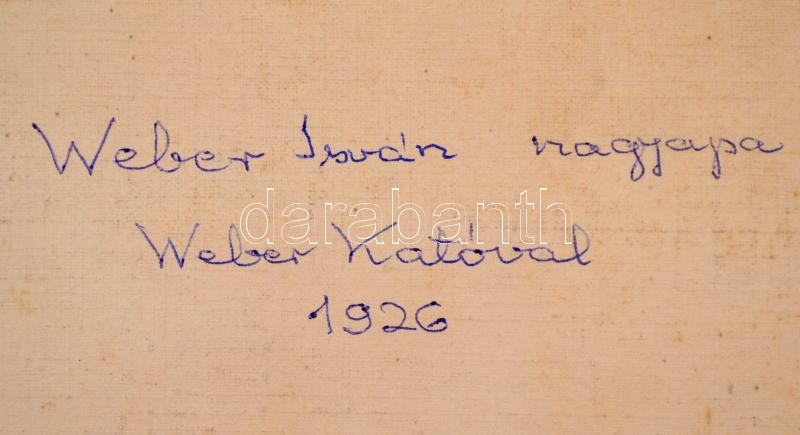 Weber Isván nagyapa
darabanth
Weber Katóval
1926